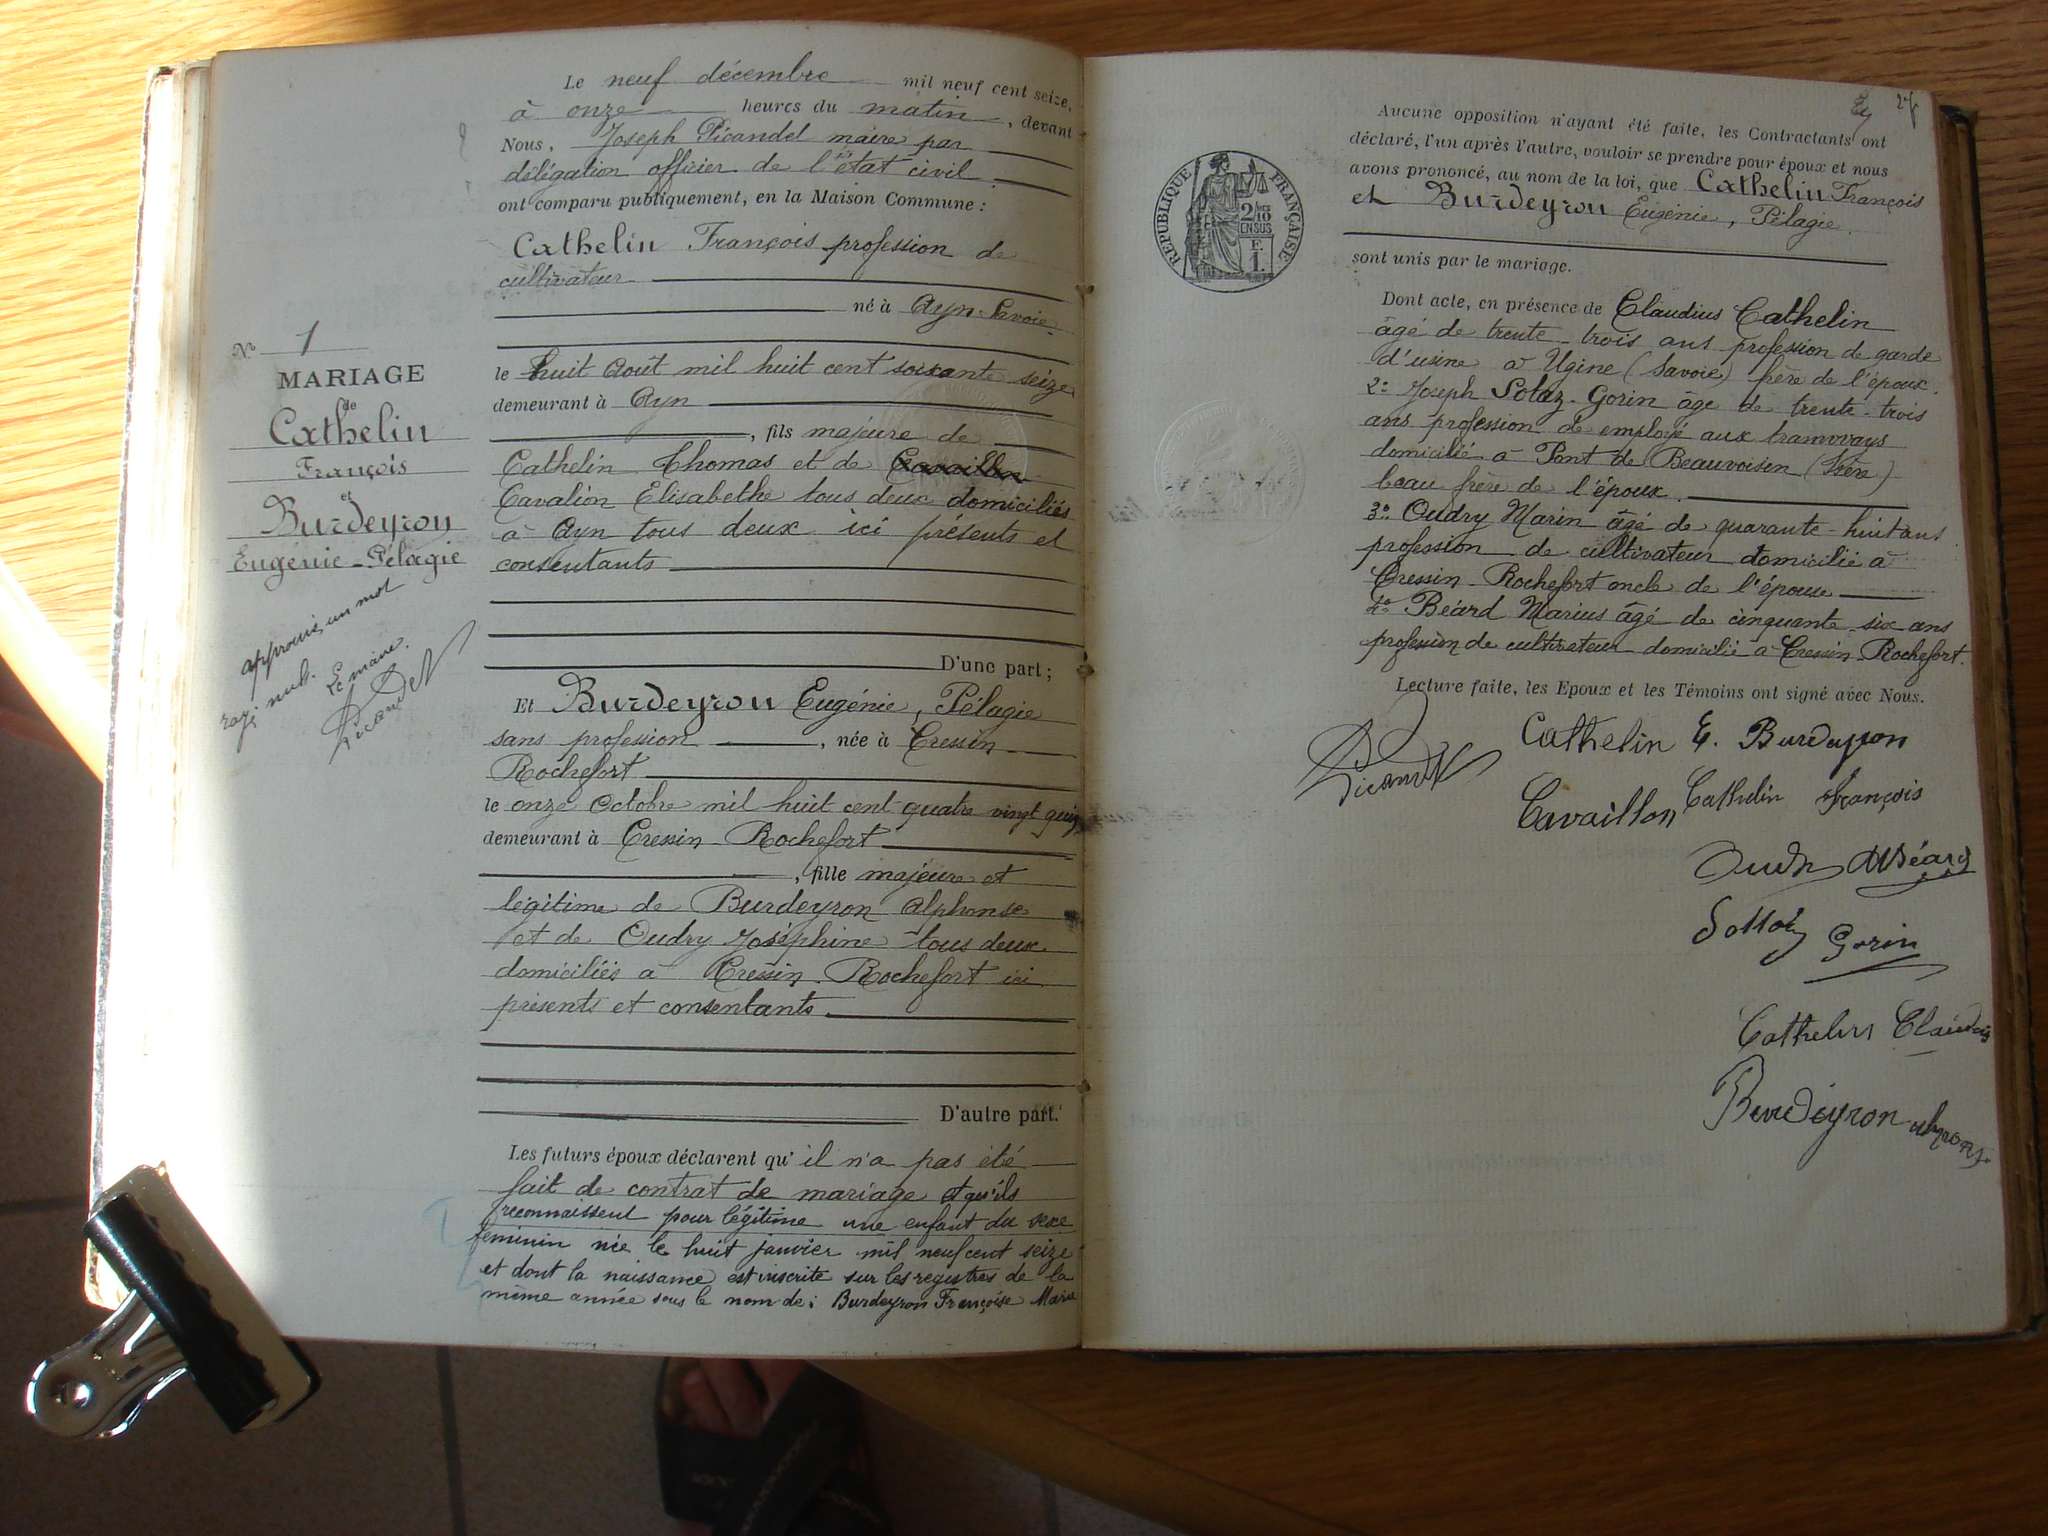 Le neuf décembre mil neuf cent seize,
à onze heures du matin, devant
Nous, Joseph Picandet maire par
délégation officier de l'état civil
ont comparu publiquement, en la Maison Commune :
Cathelin François profession de
cultivateur
né à Ayn-Savoie
le huit Août mil huit cent soixante seize
demeurant à Ayn
, fils majeure de
Cathelin Thomas et de
Cavalion Elisabethe tous deux domiciliés
à Ayn tous deux ici présents et
consentants
D'une part ;
Et Burdeyron Eugénie, Pélagie
sans profession, née à Cressin
Rochefort
le onze Octobre mil huit cent quatre vingt
demeurant à Cressin-Rochefort
, fille majeure et
légitime de Burdeyron Alphonse
et de Oudry Joséphine tous deux
domiciliés à Cressin-Rochefort ici
présents et consentants.
D'autre part.
Les futurs époux déclarent qu'il n'a pas été
fait de contrat de mariage et qu'ils
reconnaissent pour légitime une enfant du sexe
féminin née le huit janvier mil neuf cent seize
et dont la naissance est inscrite sur les registres de la
même année sous le nom de : Burdeyron Françoise Marie
No 1
MARIAGE
de
Cathelin
François
et
Burdeyron
Eugénie-Pélagie
approuvé un mot
rayé nul. Le maire.
Picandet
27
Aucune opposition n'ayant été faite, les Contractants ont
déclaré, l'un après l'autre, vouloir se prendre pour époux et nous
avons prononcé, au nom de la loi, que Cathelin François
et Burdeyron Eugénie, Pélagie.
sont unis par le mariage.
RÉPUBLIQUE FRANÇAISE
2/10
EN SUS
F.
1.
Dont acte, en présence de Claudius Cathelin
âgé de trente-trois ans profession de garde
d'usine à Ugine (Savoie) frère de l'époux.
2º Joseph Solaz-Gorin âge de trente-trois
ans profession de employé aux tramways
domicilié à Pont de Beauvoisin (Isère)
beau frère de l'époux.
3º Oudry Marin âgé de quarante-huit ans
profession de cultivateur domicilié à
Cressin-Rochefort oncle de l'épouse
4º Béard Marius âgé de cinquante-six ans
profession de cultivateur domicilié à Cressin-Rochefort.
Lecture faite, les Epoux et les Témoins ont signé avec Nous.
Picandet
Cathelin E. Burdeyron
Cavaillon Cathelin François
Oudry Béard
Gorin
Cathelin Claudius
Burdeyron Alphonse